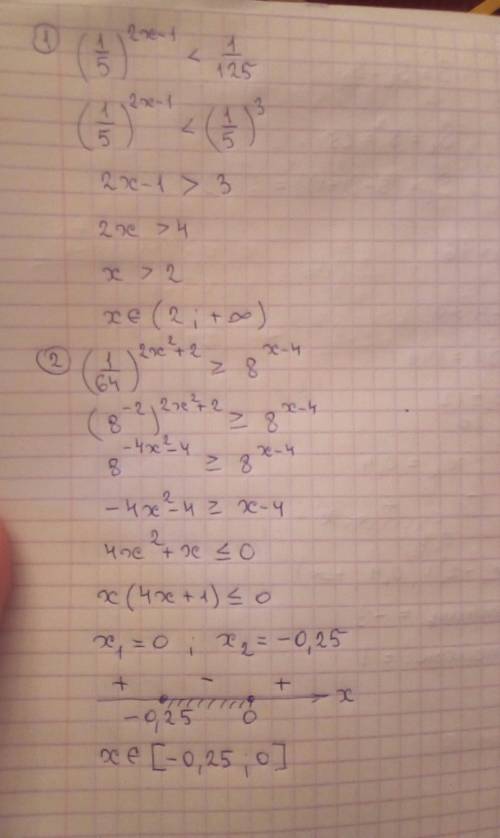 ① (1/5)^(2x-1) < 1/125
(1/5)^(2x-1) < (1/5)^3
2x-1 > 3
2x > 4
x > 2
x ∈ (2 ; +∞)
② (1/64)^(2x²+2) ≥ 8^(x-4)
(8^(-2))^(2x²+2) ≥ 8^(x-4)
8^(-4x²-4) ≥ 8^(x-4)
-4x²-4 ≥ x-4
4x²+x ≤ 0
x(4x+1) ≤ 0
x₁=0 ; x₂=-0,25
+ - + x
-0,25 0
x ∈ [-0,25 ; 0]